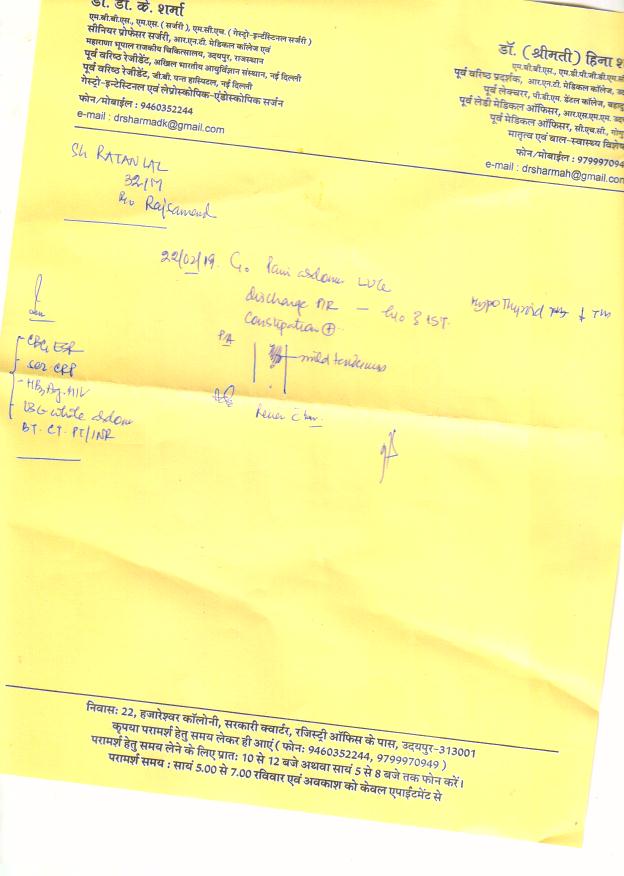 डॉ. डी. के. शर्मा
एम.बी.बी.एस., एम.एस. (सर्जरी), एम.सी.एच. (गेस्ट्रो-इन्टेंस्टिनल सर्जरी)
सीनियर प्रोफेसर सर्जरी, आर.एन.टी. मेडिकल कॉलेज एवं
महाराणा भूपाल राजकीय चिकित्सालय, उदयपुर, राजस्थान
पूर्व वरिष्ठ रेजीडेंट, अखिल भारतीय आयुर्विज्ञान संस्थान, नई दिल्ली
पूर्व वरिष्ठ रेजीडेंट, जी.बी. पन्त हास्पिटल, नई दिल्ली
गेस्ट्रो-इन्टेस्टिनल एवं लेप्रोस्कोपिक-एंडोस्कोपिक सर्जन
फोन/मोबाईल : 9460352244
e-mail : drsharmadk@gmail.com
डॉ. (श्रीमती) हिना श
एम.बी.बी.एस., एम.डी.पी.जी.डी.एम.सी
पूर्व वरिष्ठ प्रदर्शक, आर.एन.टी. मेडिकल कॉलेज, उद
पूर्व लेक्चरर, पी.डी.एम. डेंटल कॉलेज, बहादु
पूर्व लेडी मेडिकल ऑफिसर, आर.एस.एम.एम. उदय
पूर्व मेडिकल ऑफिसर, सी.एच.सी., गोगु
मातृत्व एवं बाल-स्वास्थ्य विशेष
फोन/मोबाईल : 979997094
e-mail : drsharmah@gmail.com
Sh RATAN LAL
32/M
R/o Rajsamand
22/02/19. C/o Pain abdomen
discharge P/R
Constipation +
Hypothyroid
PA
mild tenderness
CBC, ESR
Ser CRP
HBsAg. HIV
USG whole abdomen
BT. CT. PT/INR
निवास: 22, हजारेश्वर कॉलोनी, सरकारी क्वार्टर, रजिस्ट्री ऑफिस के पास, उदयपुर-313001
कृपया परामर्श हेतु समय लेकर ही आएं ( फोन: 9460352244, 9799970949 )
परामर्श हेतु समय लेने के लिए प्रात: 10 से 12 बजे अथवा सायं 5 से 8 बजे तक फोन करें।
परामर्श समय : सायं 5.00 से 7.00 रविवार एवं अवकाश को केवल एपाईंटमेंट से